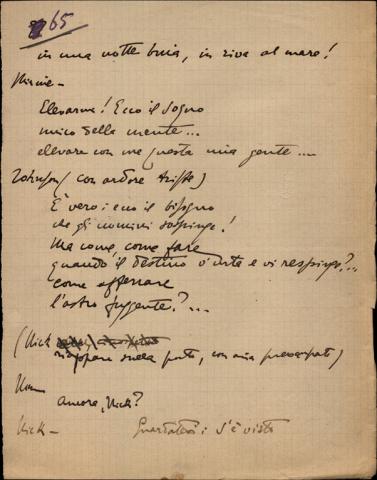 65
in una notte buia, in riva al mare!
Minnie -
Elevarmi! Ecco il sogno
unico della mente...
elevare con me questa mia gente....
Johnson (con ardore triste)
È vero: ecco il bisogno
che gli uomini sospinge!
Ma come, come fare
quando il destino v'urta e vi respinge?...
come afferrare
l'astro fuggente?...
(Nick
riappare sulla porta, con aria preoccupata)
ancora, Nick?
Nick - Guardatevi: s'è visto